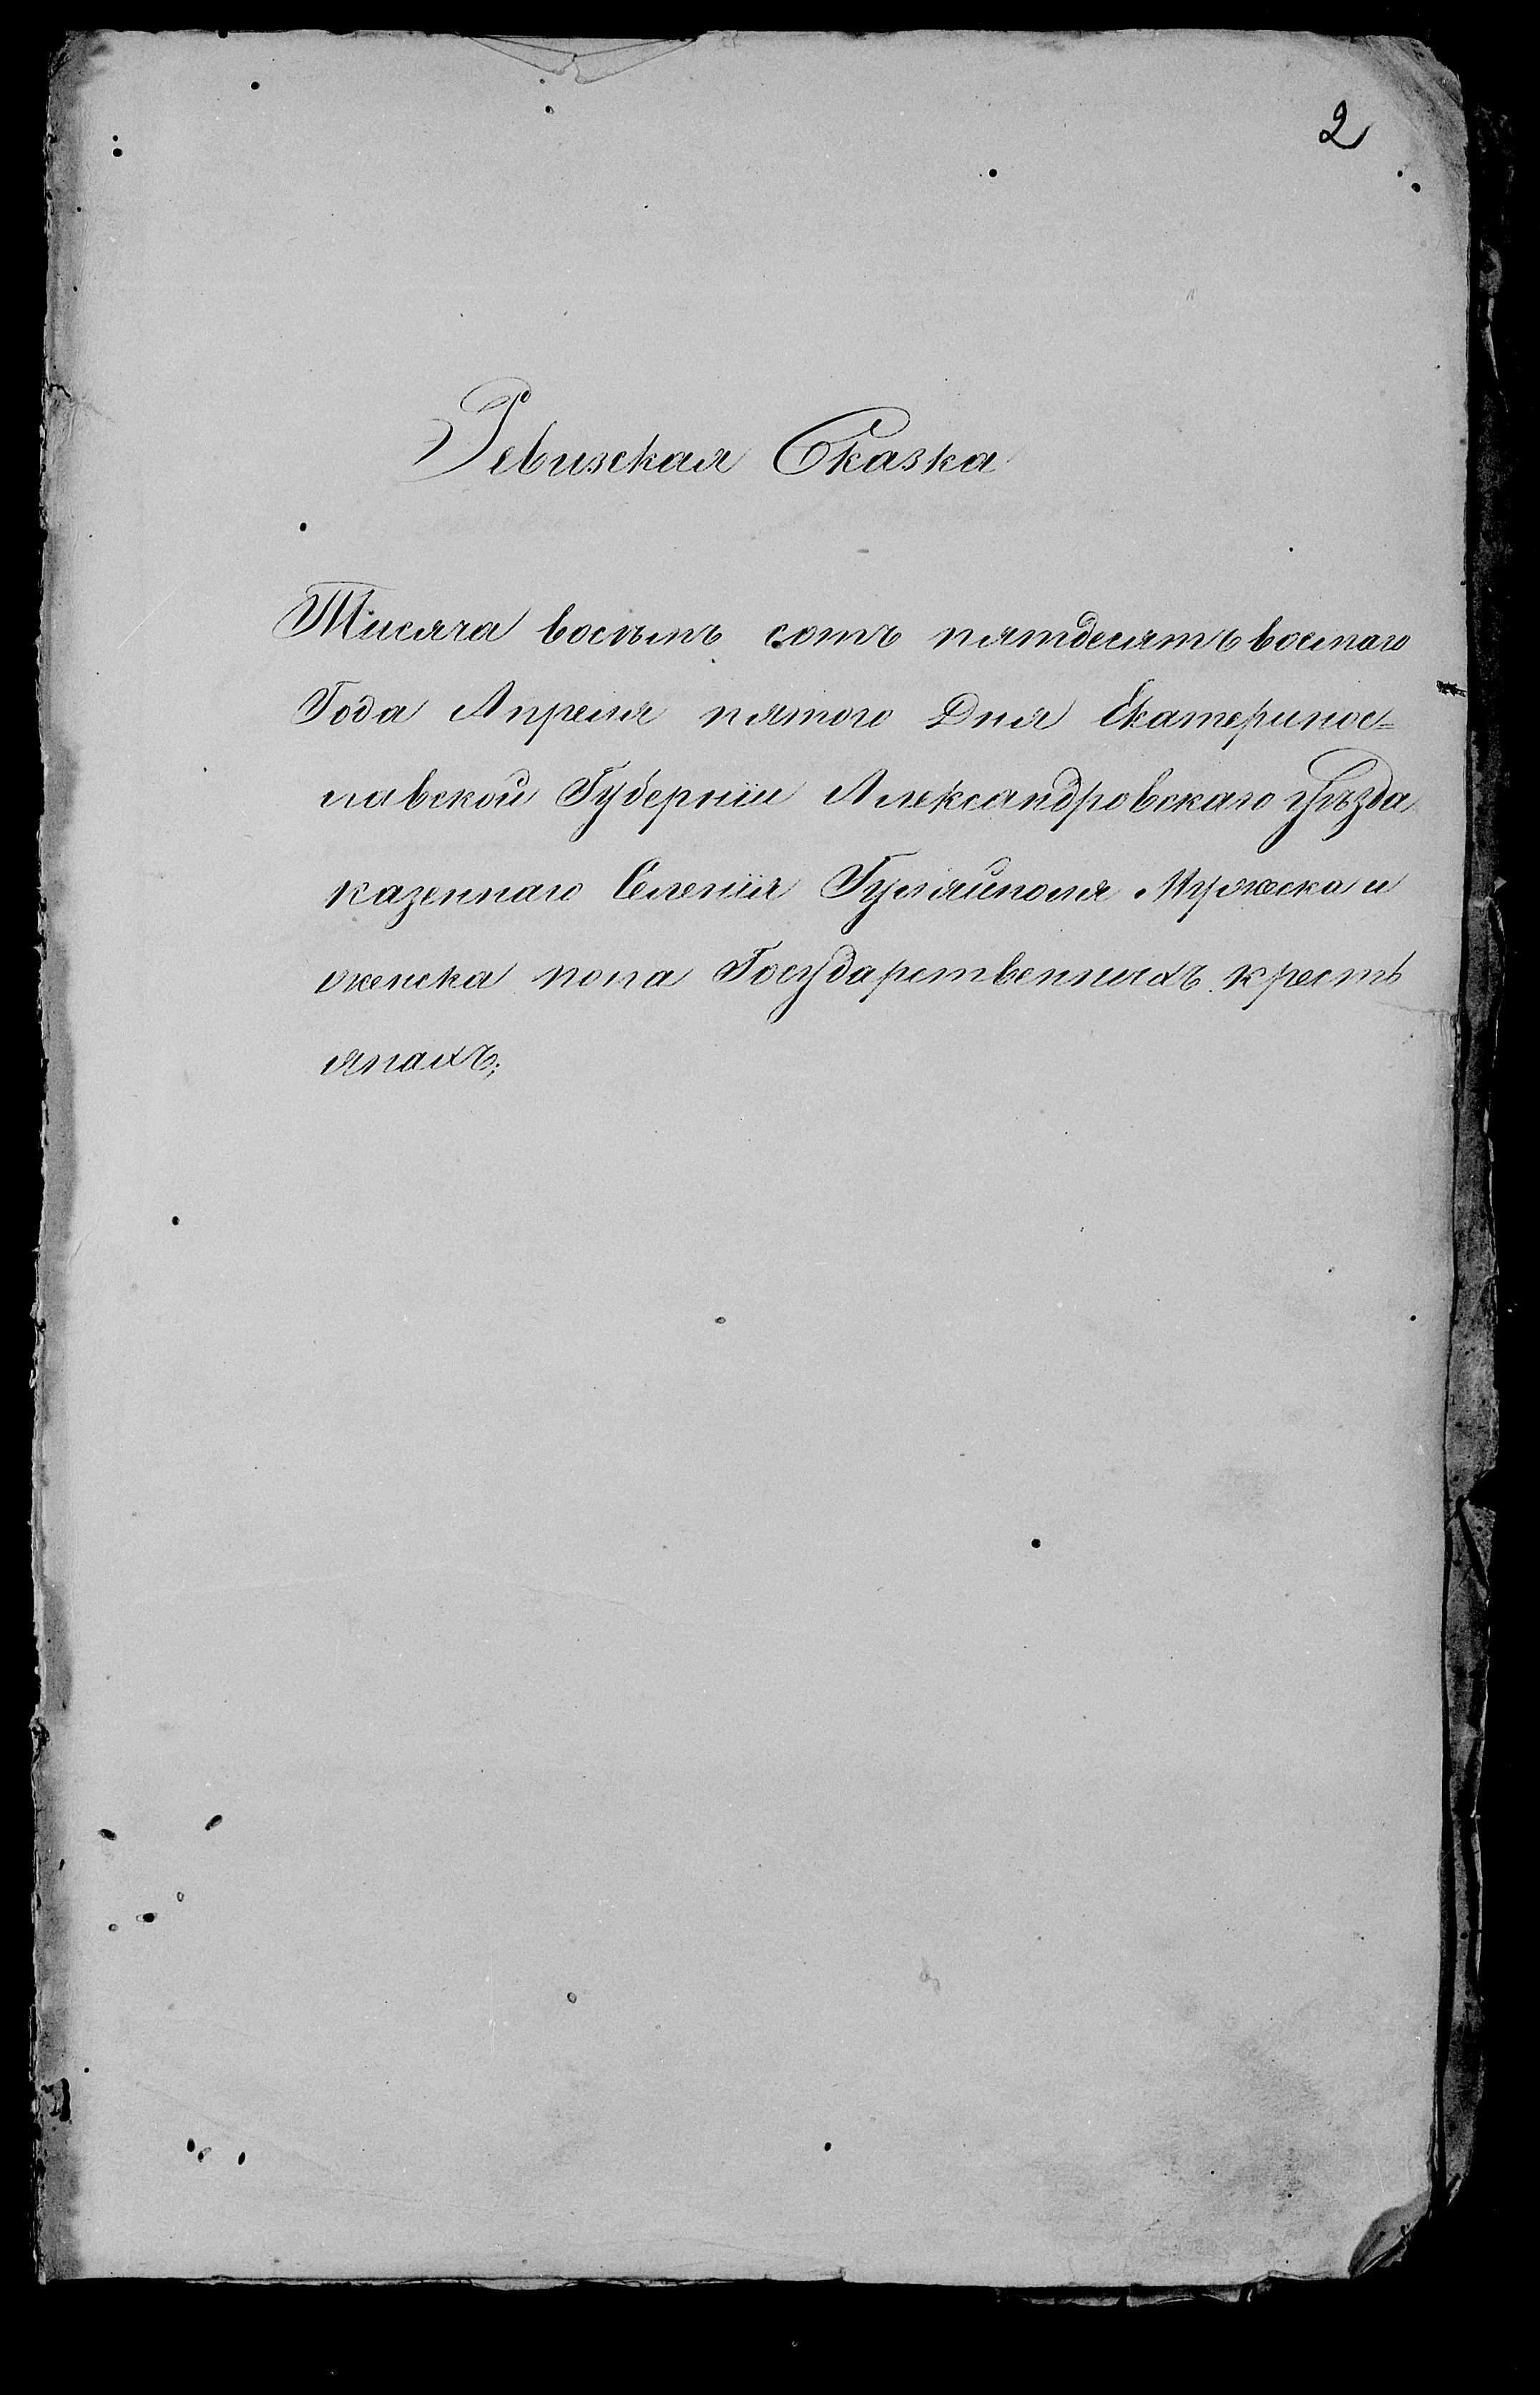 2
Ревизская Сказка
Тисяча восъмъ сотъ пятдесятъ восмаго
Года Апреля пятого Дня Екатеринос=
лавской Губернии Александровскаго уѣзда
казеннаго Селенія Гуляйполя Мужеска и
женска пола Государственныхъ кресть
янахъ;